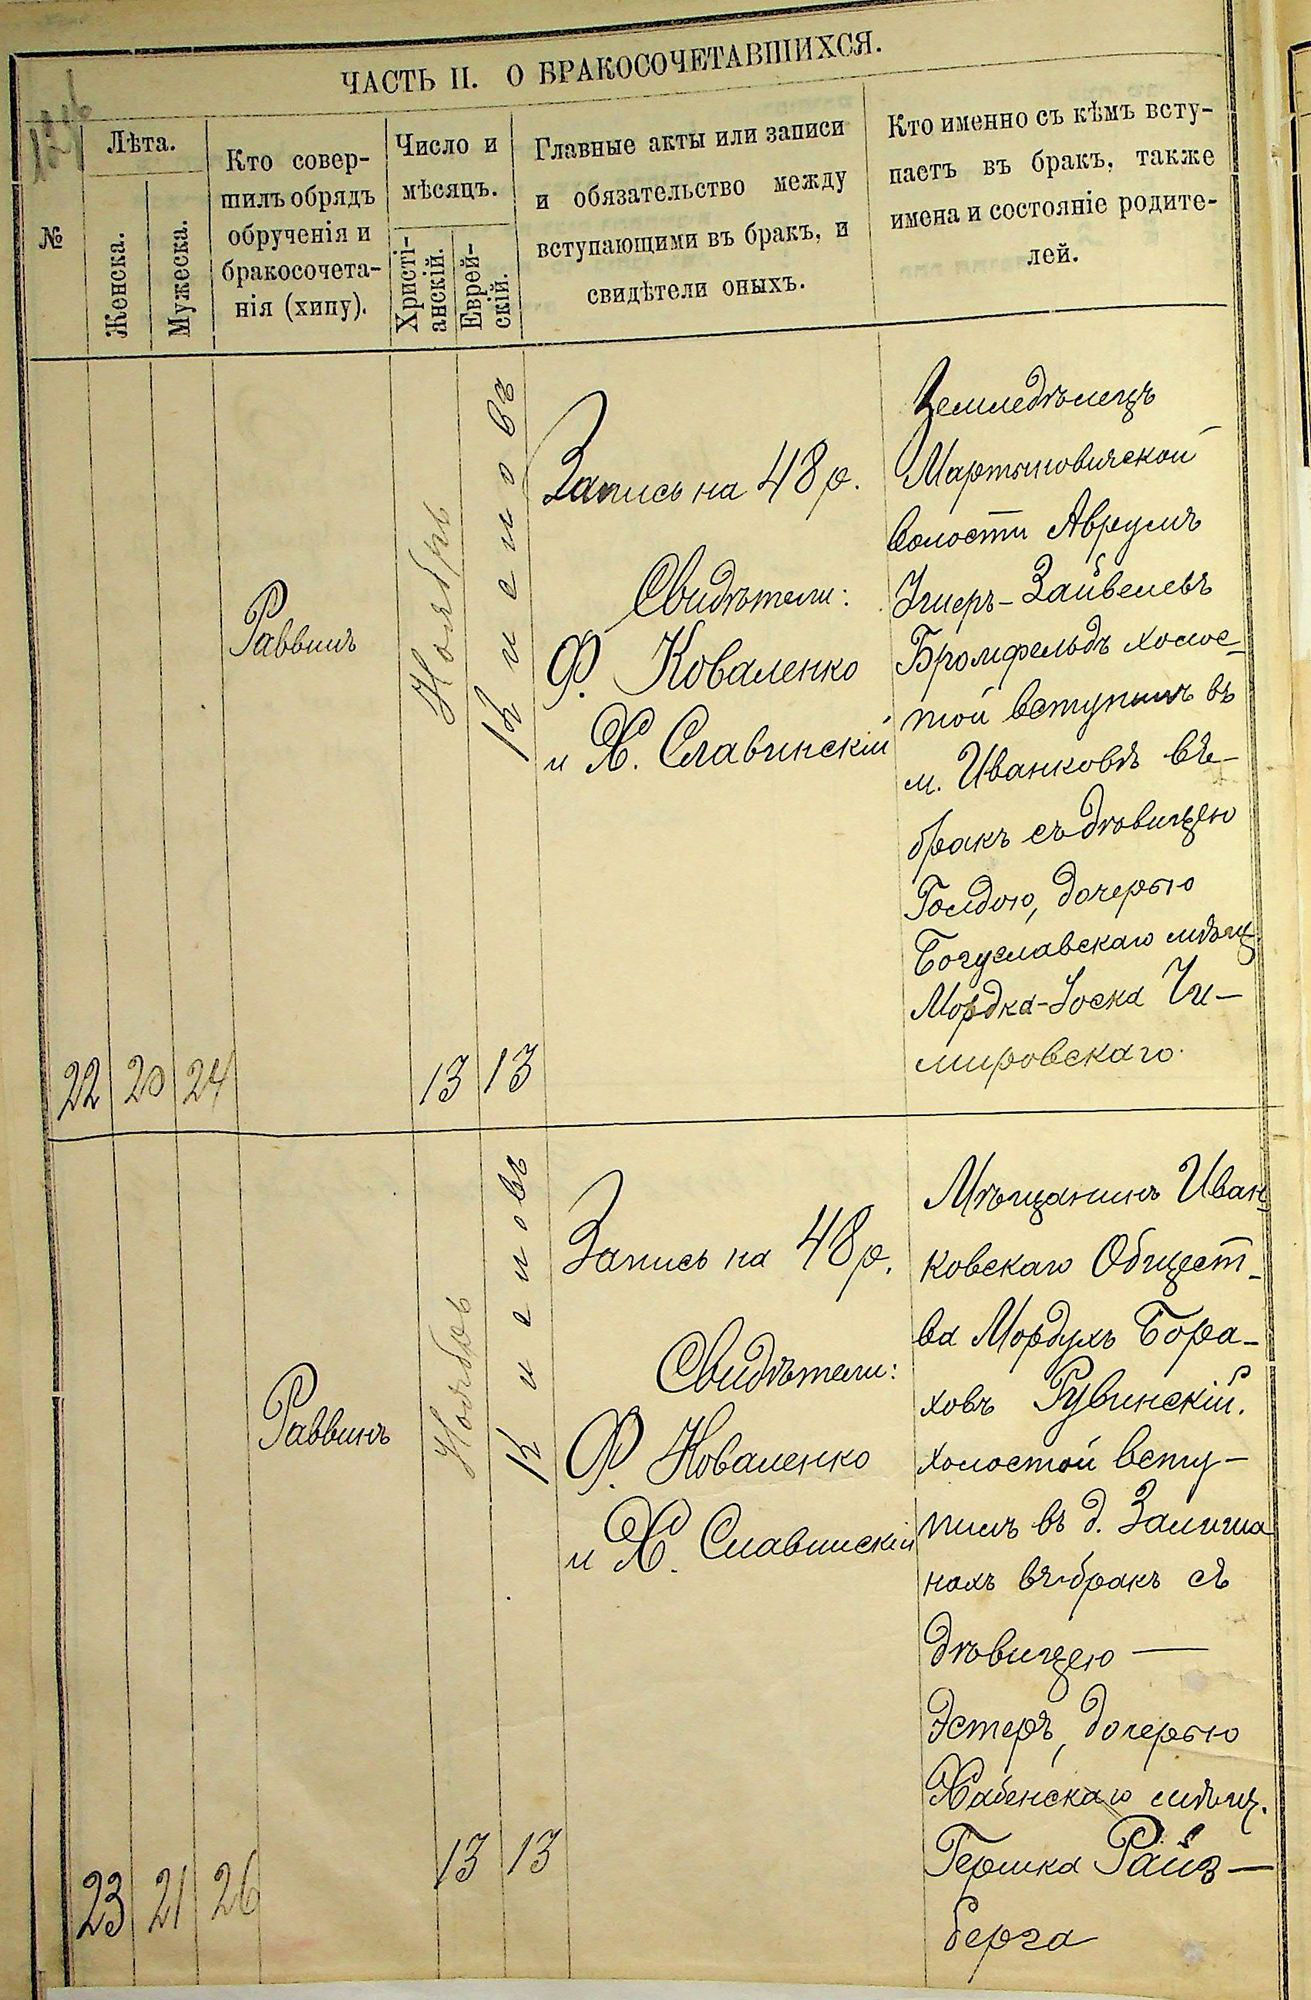 ЧАСТЬ II. О БРАКОСОЧЕТАВШИХСЯ.
№
Лѣта.
Женска.
Мужеска.
Кто совер-
шилъ обрядъ
обрученія и
бракосочета-
нія (хипу).
Число и
мѣсяцъ.
Христі-
анскій.
Еврей-
скій.
Главные акты или записи
и обязательство между
вступающими въ бракъ, и
свидѣтели оныхъ.
Кто именно съ кѣмъ всту-
паетъ въ бракъ, также
имена и состояніе родите-
лей.
22
20
24
Раввинъ
Ноябрь
13
Кисловъ
13
Запись на 48 р.
Свидѣтели:
Ф. Коваленко
и Х. Славинскій
Земледѣлецъ
Мартыновичской
волости Аврумъ
Зайвелевъ
Бромфельдъ холос-
той вступилъ въ
м. Иванковѣ въ-
бракъ съ дѣвицею
Голдою, дочерью
Богуславскаго мѣщ.
Мордка-Іоска Чи-
мировскаго.
23
21
26
Раввинъ
Ноябрь
13
Кислевъ
13
Запись на 48 р.
Свидѣтели:
Ф. Коваленко
и Х. Славинскій
Мѣщанинъ Иван-
ковскаго Общест-
ва Мордухъ Бора-
ховъ Рувинскій.
холостой всту-
пилъ въ д. Залиша
нахъ въ бракъ съ
дѣвицею —
Эстеръ, дочерью
Хабенскаго мѣщ.
Гершка Райз-
берга